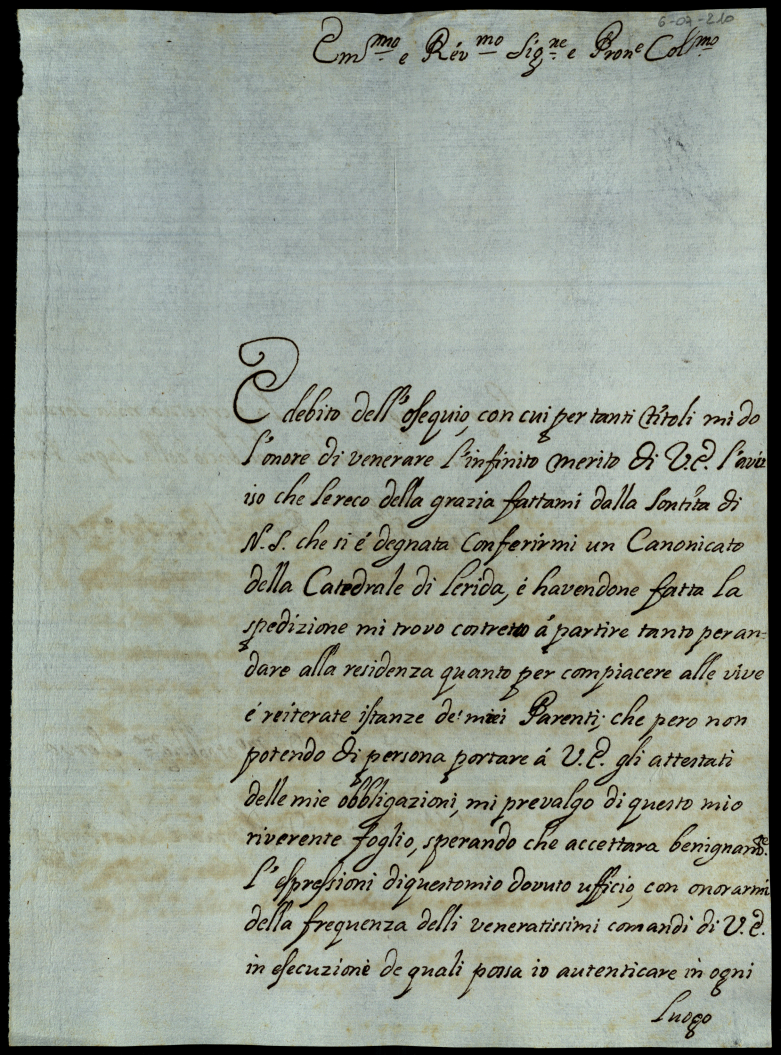 6-07-210
Em.mo e Rév.mo Sig.re e Pron.e Col.mo
E debito dell'osequio, con cui per tanti titoli mi do
l'onore di venerare l'infinito merito di V.E. l'avi
iso che le reco della grazia fattami dalla Sontita di
N.S. che si é degnata Conferirmi un Canonicato
della Catedrale di Lerida, é havendone fatta la
spedizione mi trovo costretto á partire tanto per an=
dare alla residenza quanto per compiacere alle vive
é reiterate istanze de' miei Parenti; che pero non
potendo di persona portare á V.E. gli attestati
delle mie obbligazioni, mi prevalgo di questo mio
riverente foglio, sperando che accettara benignam.te
l'espressioni di questo mio dovuto ufficio, con onorarmi
della frequenza delli veneratissimi comandi di V.E.
in esecuzione de quali possa io autenticare in ogni
Luogo